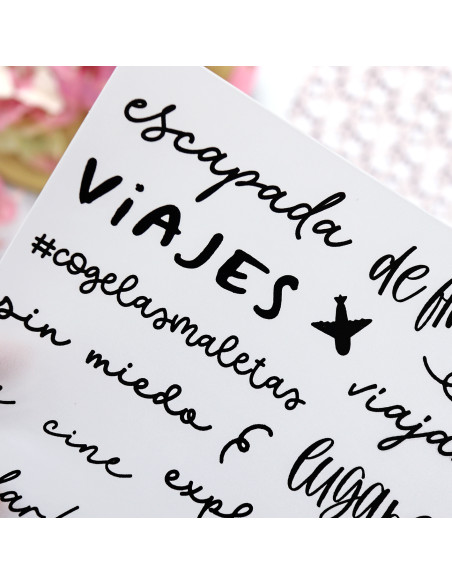 escapada de
VIAJES
#cogelasmaletas
sin miedo & viaja
cine lugar